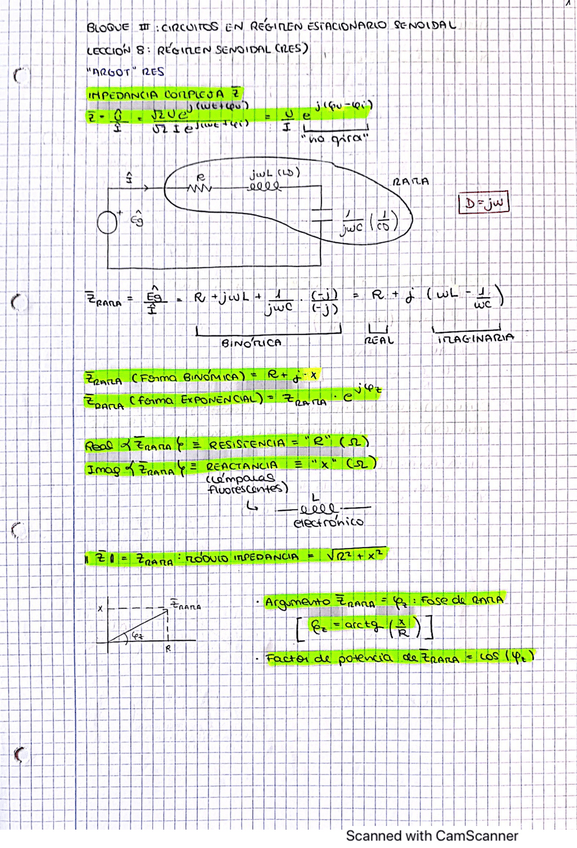 1
BLOQUE III : CIRCUITOS EN RÉGIMEN ESTACIONARIO SENOIDAL
LECCIÓN 8 : RÉGIMEN SENOIDAL (RES)
"ARGOT" RES
IMPEDANCIA COMPLEJA Z̄
Z̄ = Û/Î = √2 U e^j(ωt+φu) / √2 I e^j(ωt+φi) = U/I e^j(φu-φi)
"no gira"
Î R jωL (LD) RAMA
D = jω
+ Êg 1/jωC (1/CD)
Z̄RAMA = Êg/Î = R + jωL + 1/jωC · (-j)/(-j) = R + j (ωL - 1/ωC)
BINÓMICA REAL IMAGINARIA
Z̄RAMA (Forma BINÓMICA) = R + j · X
Z̄RAMA (forma EXPONENCIAL) = ZRAMA · e^jφz
Real {Z̄RAMA} ≡ RESISTENCIA = "R" (Ω)
Imag {Z̄RAMA} ≡ REACTANCIA ≡ "X" (Ω)
(lámparas
fluorescentes)
↳ L
electrónico
|Z̄| = ZRAMA : MÓDULO IMPEDANCIA = √R²+X²
X Z̄RAMA
φz
R
· Argumento Z̄RAMA = φz : Fase de RAMA
[ φz = arctg (X/R) ]
· Factor de potencia de Z̄RAMA = cos (φz)
Scanned with CamScanner